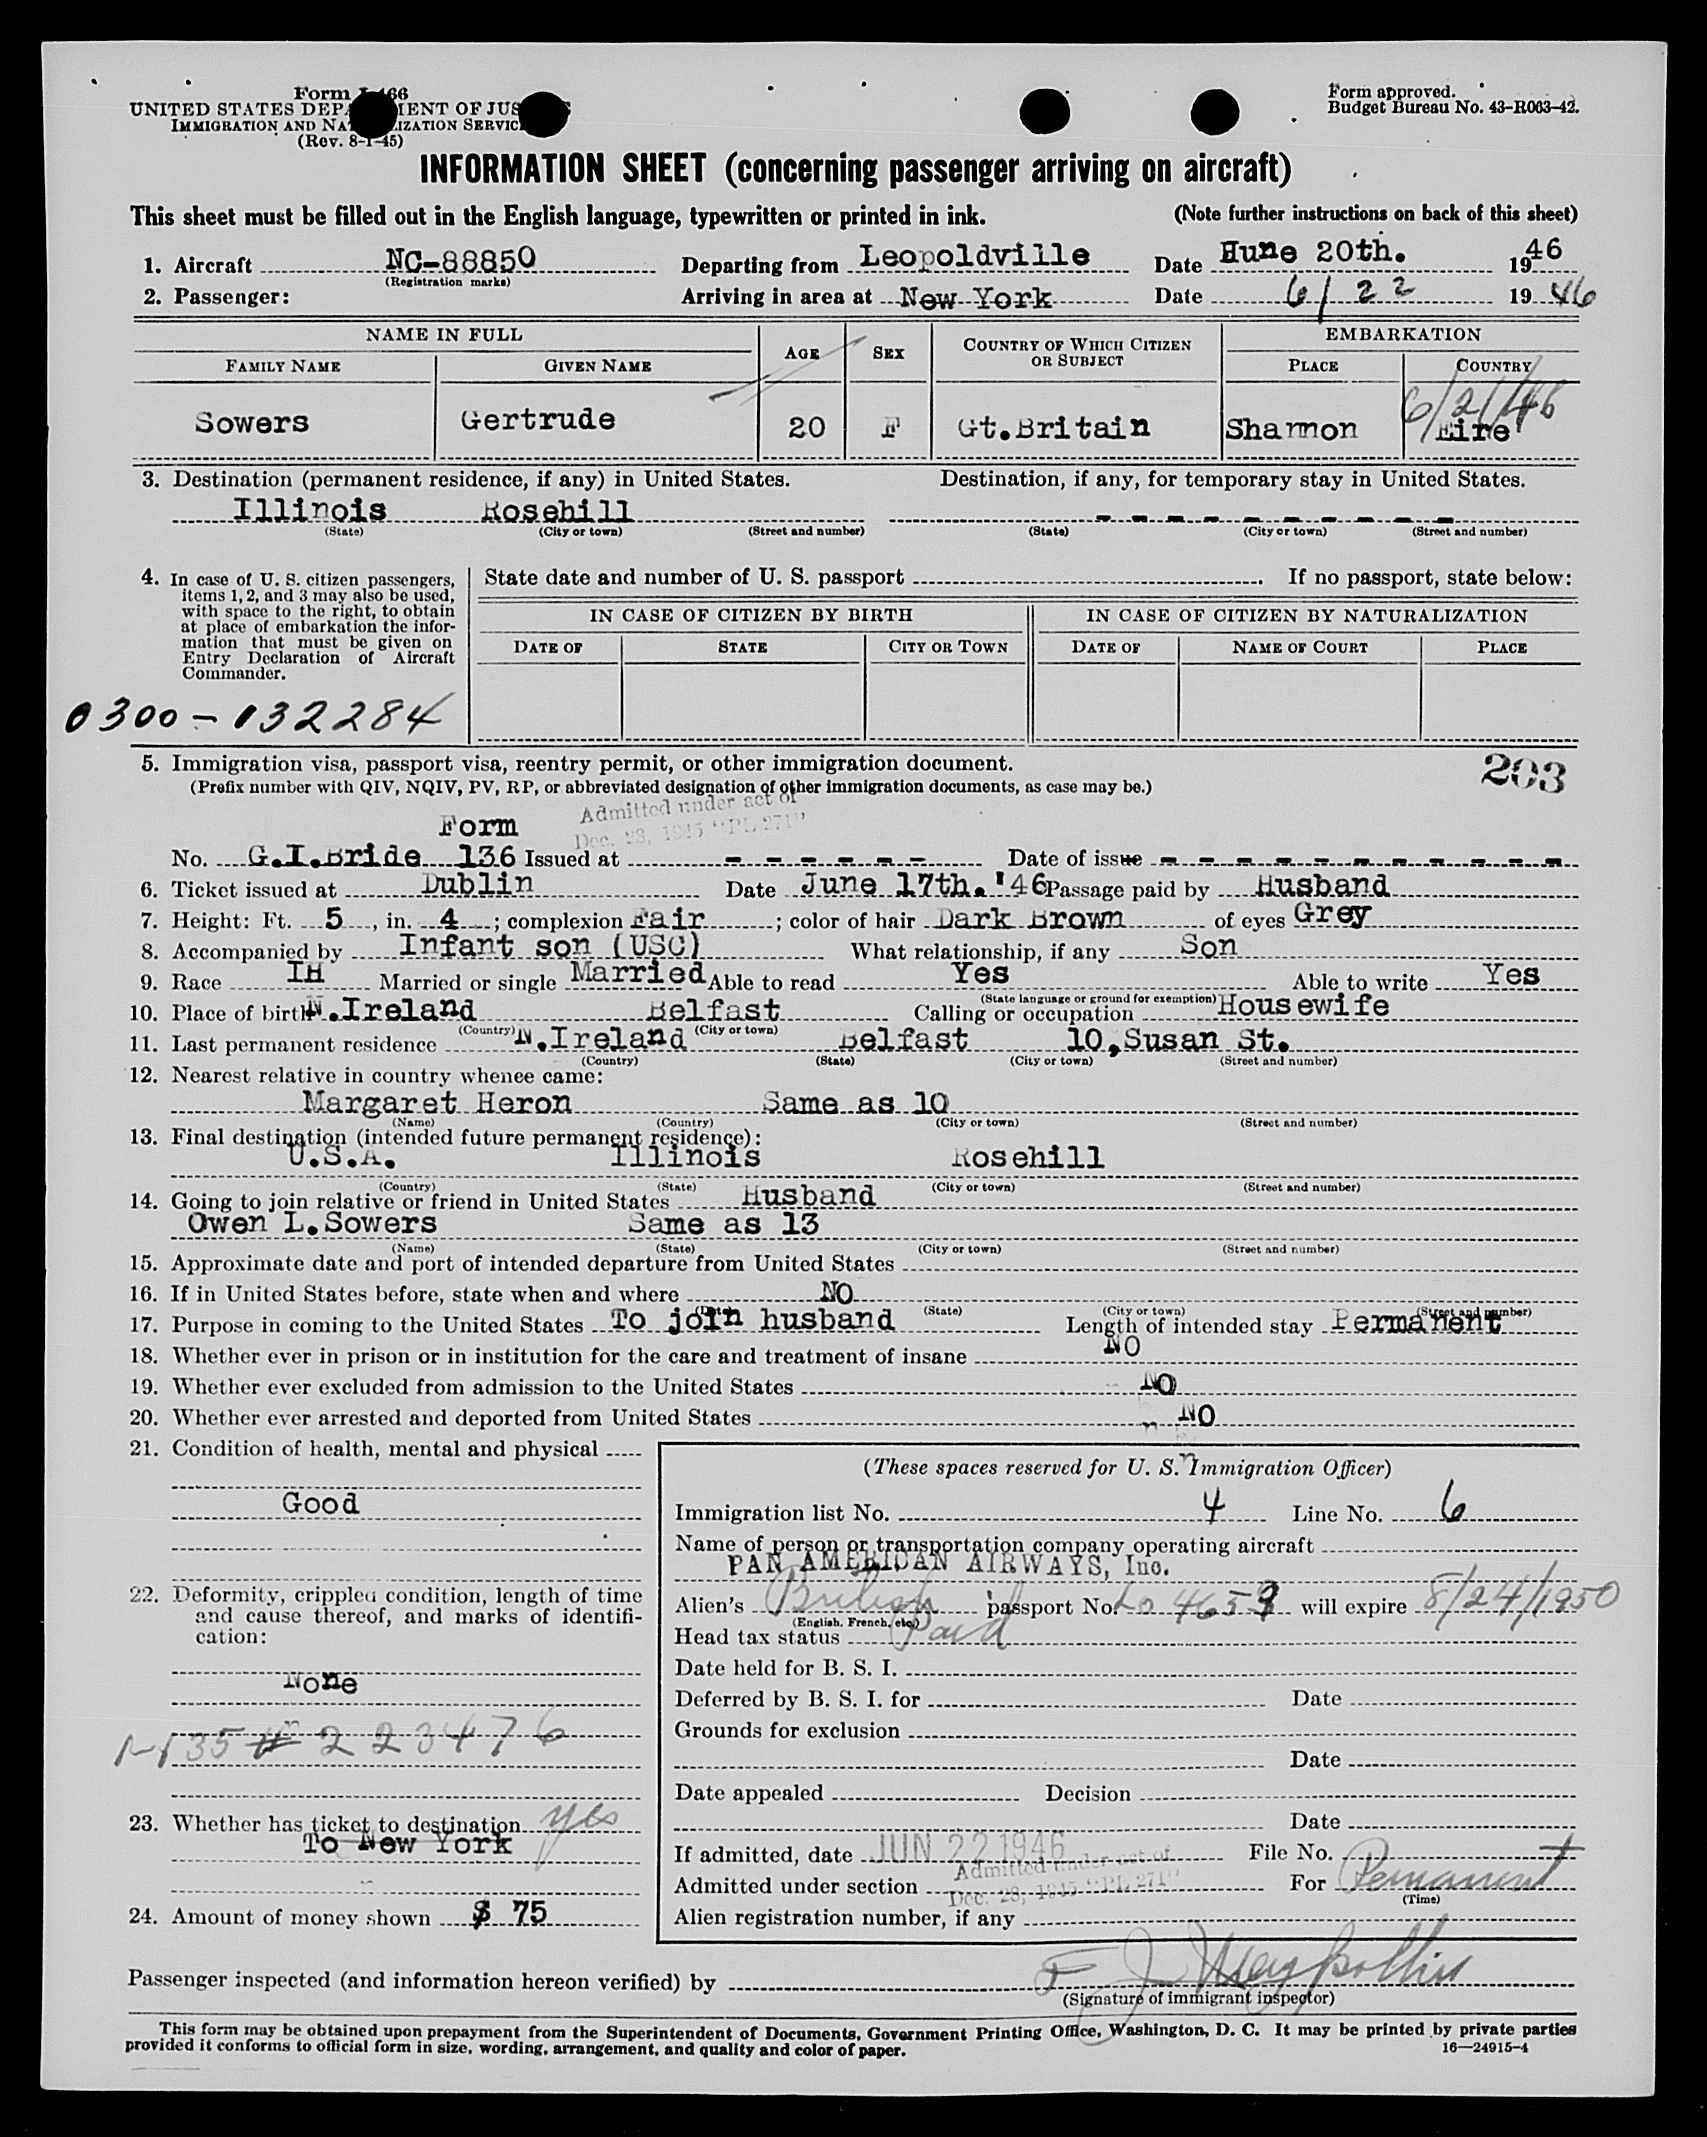 Form I-466
UNITED STATES DEPARTMENT OF JUSTICE
IMMIGRATION AND NATURALIZATION SERVICE
(Rev. 8-1-45)
Form approved.
Budget Bureau No. 43-R063-42.
INFORMATION SHEET (concerning passenger arriving on aircraft)
This sheet must be filled out in the English language, typewritten or printed in ink. (Note further instructions on back of this sheet)
1. Aircraft NC-88850 Departing from Leopoldville Date Hune 20th. 1946
(Registration marks)
2. Passenger: Arriving in area at New York Date 6/22 1946
NAME IN FULL AGE SEX COUNTRY OF WHICH CITIZEN OR SUBJECT EMBARKATION
FAMILY NAME GIVEN NAME PLACE COUNTRY
6/21/46
Sowers Gertrude 20 F Gt.Britain Shannon Eire
3. Destination (permanent residence, if any) in United States. Destination, if any, for temporary stay in United States.
Illinois Rosehill - - - - - - - - - -
(State) (City or town) (Street and number) (State) (City or town) (Street and number)
4. In case of U. S. citizen passengers, items 1, 2, and 3 may also be used, with space to the right, to obtain at place of embarkation the information that must be given on Entry Declaration of Aircraft Commander.
State date and number of U. S. passport . If no passport, state below:
IN CASE OF CITIZEN BY BIRTH IN CASE OF CITIZEN BY NATURALIZATION
DATE OF STATE CITY OR TOWN DATE OF NAME OF COURT PLACE
0300-132284
5. Immigration visa, passport visa, reentry permit, or other immigration document. 203
(Prefix number with QIV, NQIV, PV, RP, or abbreviated designation of other immigration documents, as case may be.)
Admitted under act of
Dec. 28, 1945 "PL 271"
Form
No. G.I.Bride 136 Issued at - - - - - - Date of issue - - - - - - - - - - -
6. Ticket issued at Dublin Date June 17th.'46 Passage paid by Husband
7. Height: Ft. 5, in. 4; complexion Fair; color of hair Dark Brown of eyes Grey
8. Accompanied by Infant son (USC) What relationship, if any Son
9. Race IH Married or single Married Able to read Yes Able to write Yes
(State language or ground for exemption)
10. Place of birth N.Ireland Belfast Calling or occupation Housewife
(Country) (City or town)
11. Last permanent residence N.Ireland Belfast 10,Susan St.
(Country) (State) (City or town) (Street and number)
12. Nearest relative in country whence came:
Margaret Heron Same as 10
(Name) (Country) (City or town) (Street and number)
13. Final destination (intended future permanent residence):
U.S.A. Illinois Rosehill
(Country) (State) (City or town) (Street and number)
14. Going to join relative or friend in United States Husband
Owen L.Sowers Same as 13
(Name) (State) (City or town) (Street and number)
15. Approximate date and port of intended departure from United States
16. If in United States before, state when and where NO
(Date) (State) (City or town) (Street and number)
17. Purpose in coming to the United States To join husband Length of intended stay Permanent
18. Whether ever in prison or in institution for the care and treatment of insane NO
19. Whether ever excluded from admission to the United States NO
20. Whether ever arrested and deported from United States NO
21. Condition of health, mental and physical
Good
22. Deformity, crippled condition, length of time and cause thereof, and marks of identification:
None
# 223476
23. Whether has ticket to destination yes
To New York
24. Amount of money shown $ 75
(These spaces reserved for U. S. Immigration Officer)
Immigration list No. 4 Line No. 6
Name of person or transportation company operating aircraft
PAN AMERICAN AIRWAYS, Inc.
Alien's British passport No. Lo 4659 will expire 8/24/1950
(English, French, etc.)
Head tax status Paid
Date held for B. S. I.
Deferred by B. S. I. for Date
Grounds for exclusion
Date
Date appealed Decision
Date
If admitted, date JUN 22 1946 File No.
Admitted under section Admitted under act of Dec. 28, 1945 "PL 271" For Permanent
(Time)
Alien registration number, if any
Passenger inspected (and information hereon verified) by F J
(Signature of immigrant inspector)
This form may be obtained upon prepayment from the Superintendent of Documents, Government Printing Office, Washington, D. C. It may be printed by private parties
provided it conforms to official form in size, wording, arrangement, and quality and color of paper. 16—24915-4